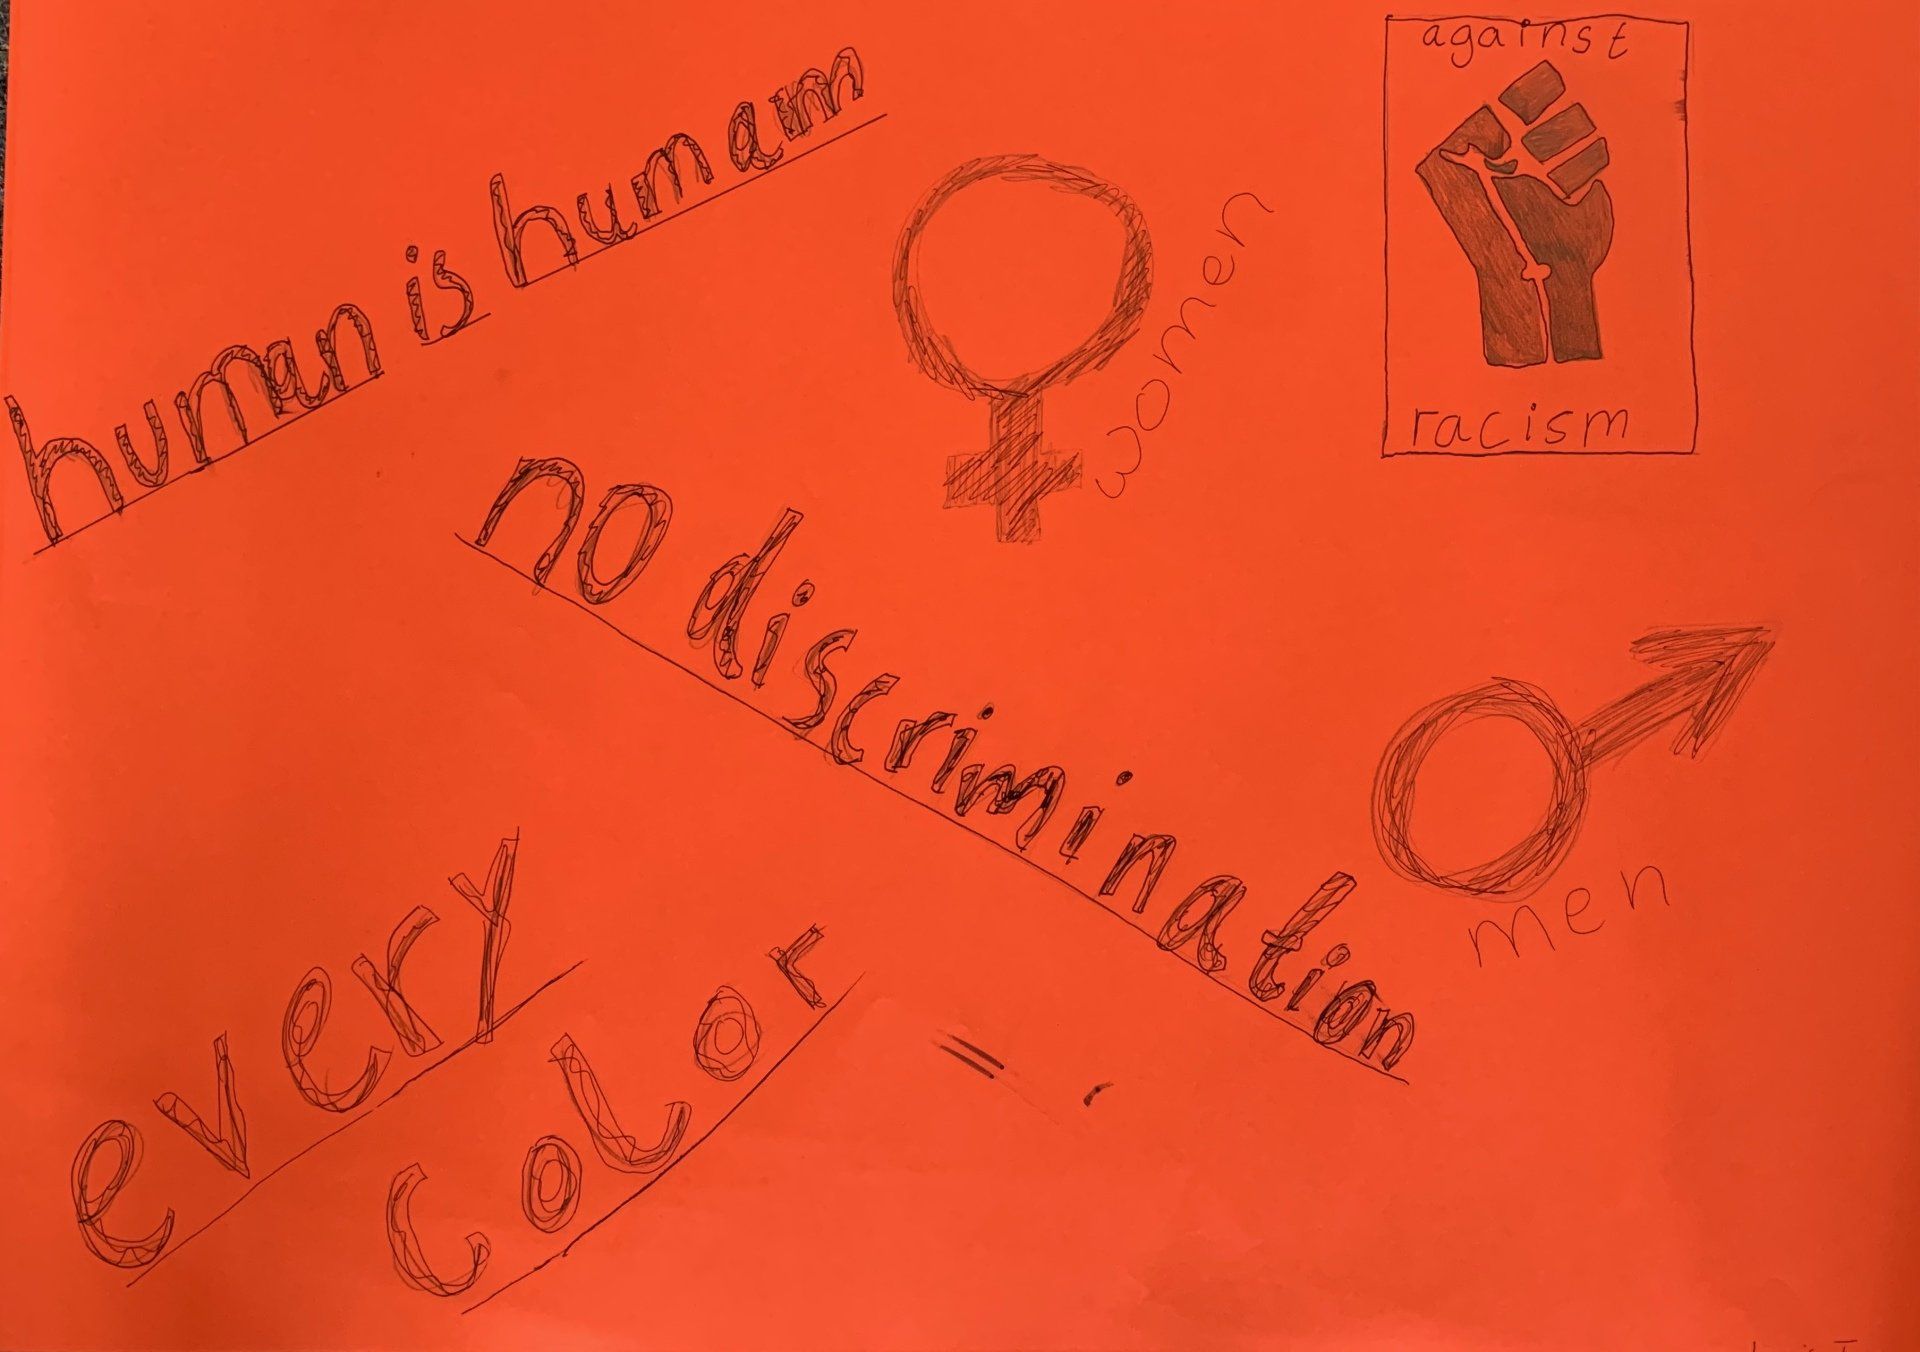 human is human
against
racism
women
no discrimination
men
every
color
=